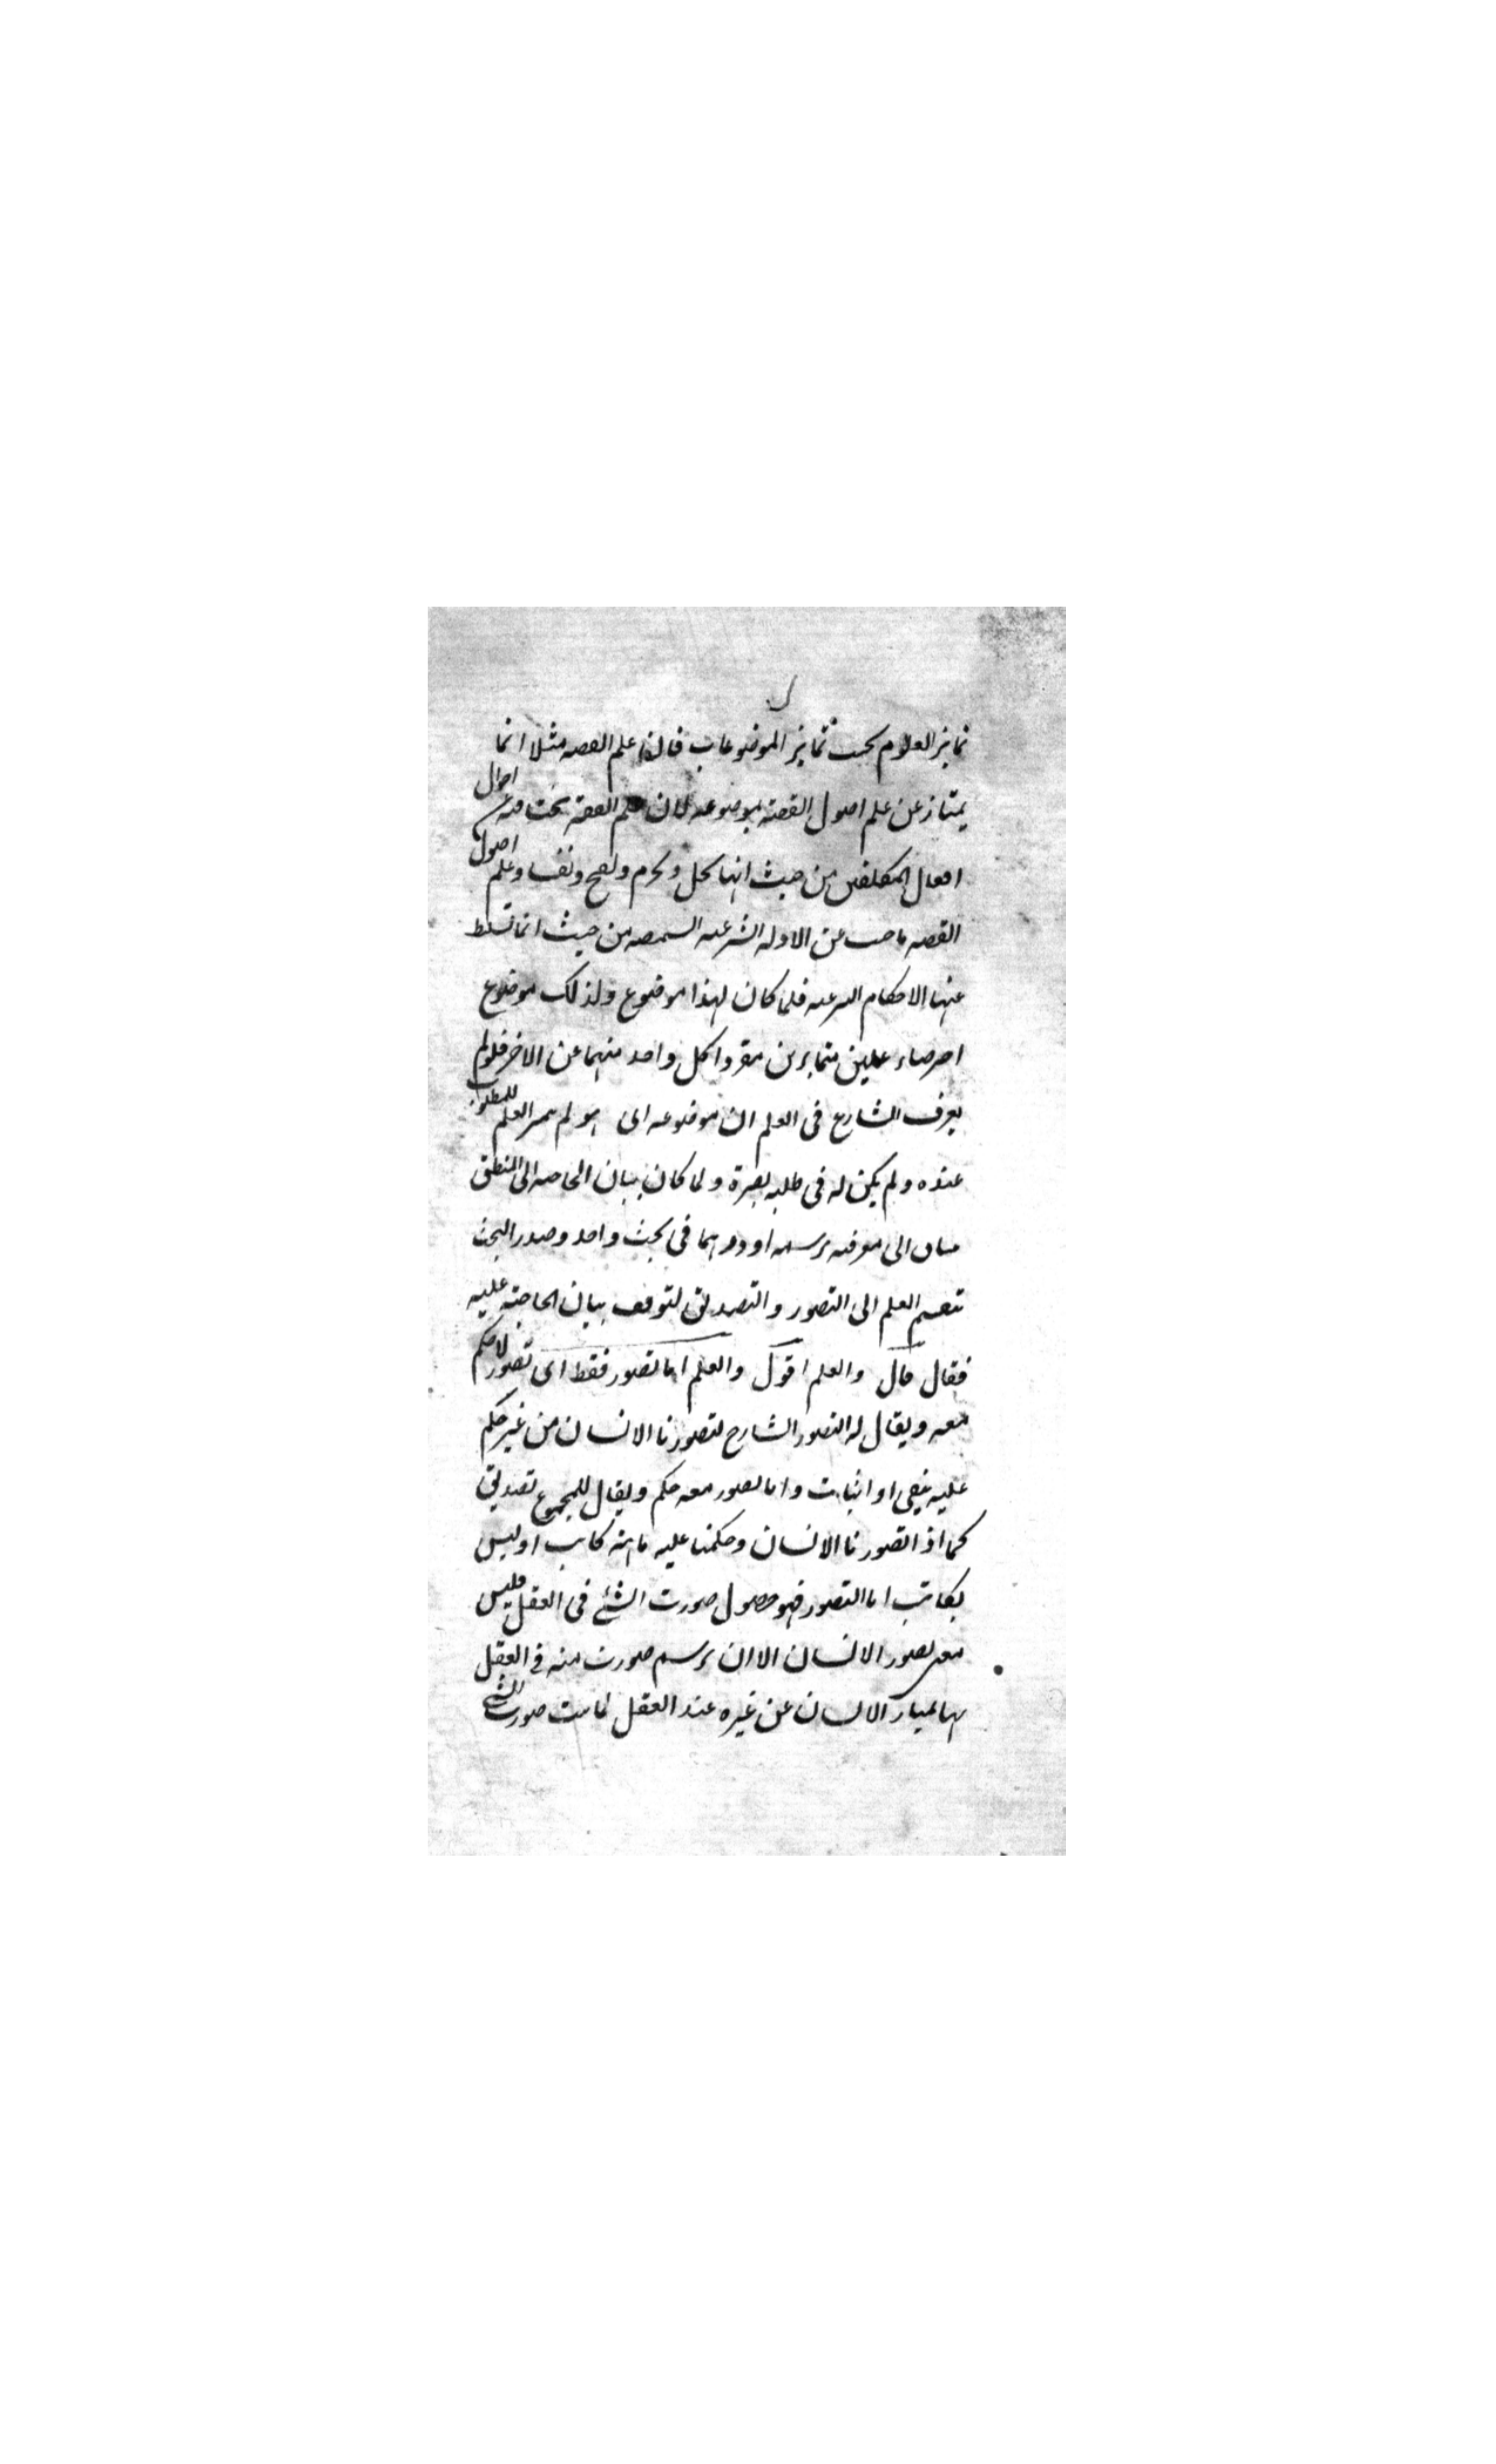 تمايز العلوم بحسب تمايز الموضوعات فان علم الفقه مثلا انما
يمتاز عن علم اصول الفقه بموضوعه لان علم الفقه يبحث فيه عن احوال
افعال المكلفين من حيث انها تحل وتحرم وتصح وتفسد وعلم اصول
الفقه باحث عن الادلة الشرعيه السمعيه من حيث انها تستنبط
عنها الاحكام الشرعيه فلما كان لهذا موضوع ولذلك موضوع
اخر صارا علمين متمايزين منفردا كل واحد منهما عن الاخر فلو لم
يعرف الشارع فى العلم ان موضوعه اى هو لم يتميز العلم المطلوب
عنده ولم يكن له فى طلبه بصيرة ولما كان بيان الحاجه الى المنطق
ينساق الى معرفته برسمه اوردهما فى بحث واحد وصدر البحث
بتقسيم العلم الى التصور والتصديق لتوقف بيان الحاجة عليه
فقال قال والعلم اقول والعلم اما تصور فقط اى تصور لا حكم
معه ويقال له التصور الشارح لتصورنا الانسان من غير حكم
عليه بنفى او اثبات واما تصور معه حكم ويقال للمجموع تصديق
كما اذا تصورنا الانسان وحكمنا عليه بانه كاتب او ليس
بكاتب اما التصور فهو حصول صورت الشئ فى العقل فليس
معنى تصور الانسان الا ان يرسم صورت منه فى العقل
بها يمتاز الانسان عن غيره عند العقل كما يثبت صورت الشئ